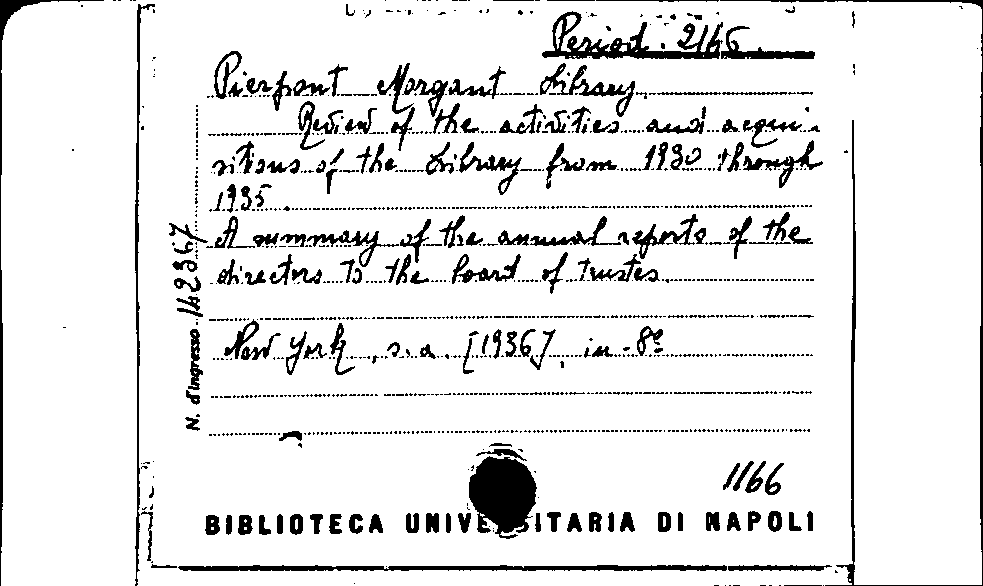 Period. 2166.
Pierpont Morgant Library.
Review of the activities and acqui-
sitions of the Library from 1930 through
1935.
A summary of the annual reports of the
directors to the board of trustes.
New York, s.a. [1936], in-8º
N. d'ingresso 142367
1166
BIBLIOTECA UNIVERSITARIA DI NAPOLI